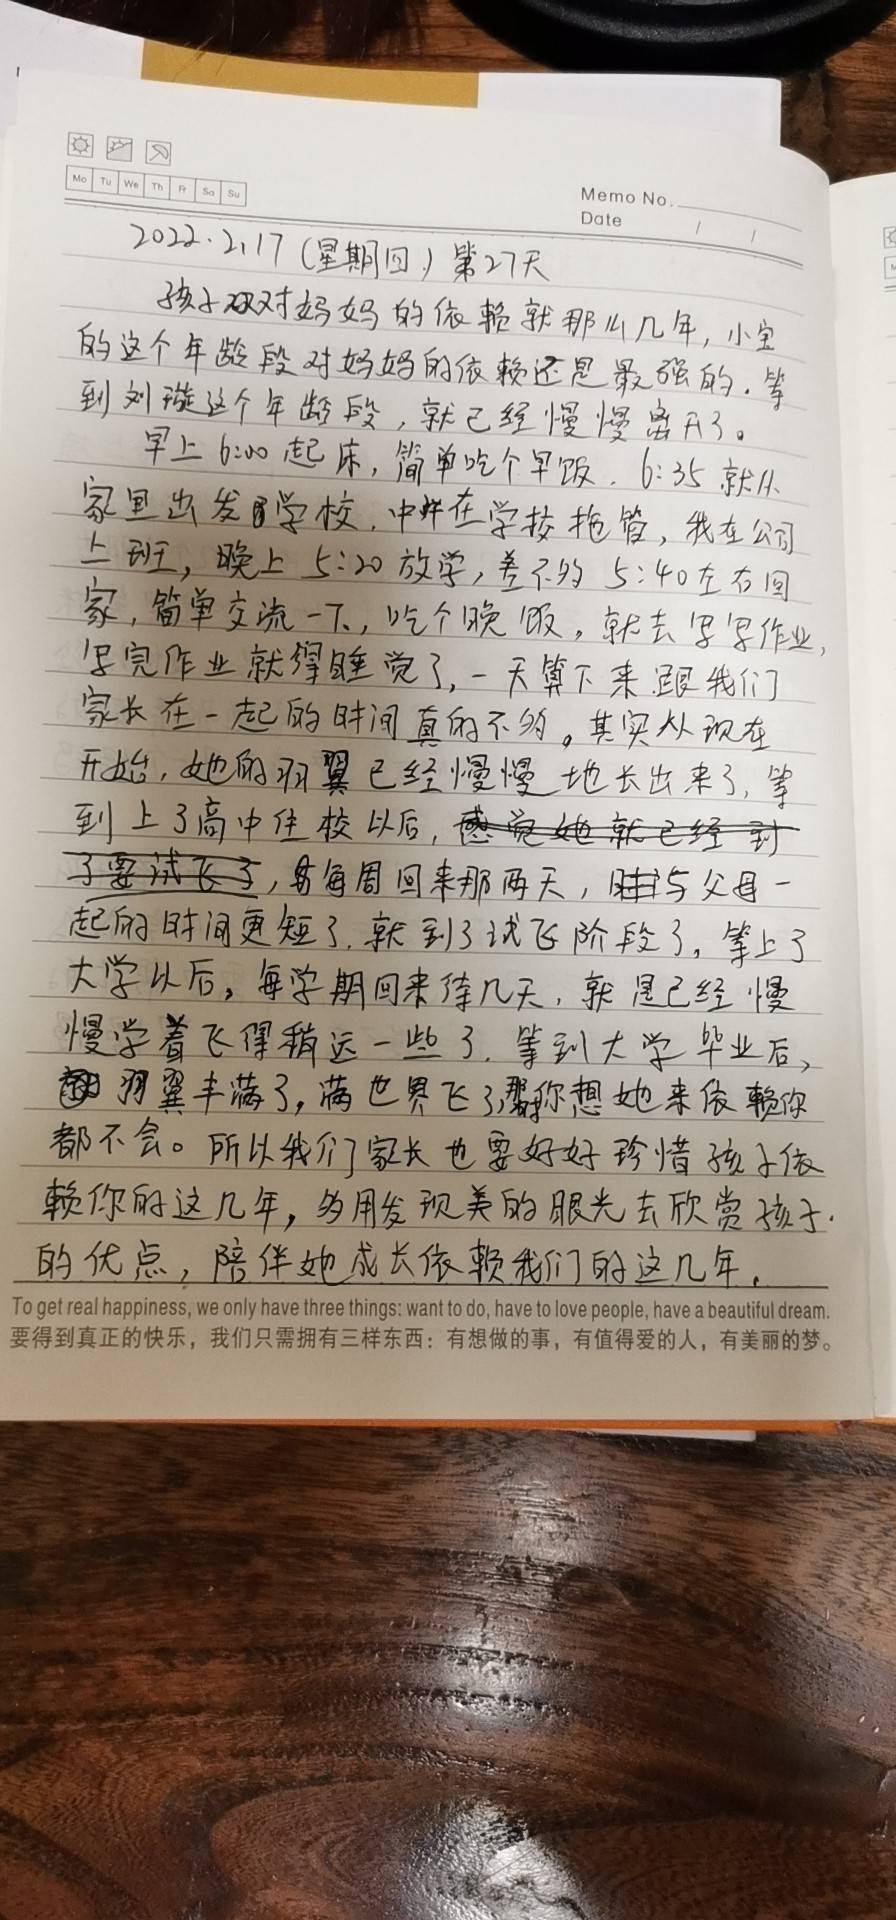 Mo Tu We Th Fr Sa Su
Memo No.
Date / /
2022.2.17 (星期四) 第27天
孩子对妈妈的依赖就那么几年，小宝
的这个年龄段对妈妈的依赖还是最强的.等
到刘璇这个年龄段，就已经慢慢离开了。
早上6:00起床，简单吃个早饭.6:35就从
家里出发学校.中午在学校托管，我在公司
上班，晚上5:20放学，差不多5:40左右回
家，简单交流一下，吃个晚饭，就去写写作业，
写完作业就得睡觉了，一天算下来跟我们
家长在一起的时间真的不多。其实从现在
开始，她的羽翼已经慢慢地长出来了，等
到上了高中住校以后，感觉她就已经到
了要试飞了，每周回来那两天，与父母一
起的时间更短了.就到了试飞阶段了，等上了
大学以后，每学期回来待几天，就是已经慢
慢学着飞得稍远一些了.等到大学毕业后，
羽翼丰满了，满世界飞了，那你想她来依赖你
都不会。所以我们家长也要好好珍惜孩子依
赖你的这几年，多用发现美的眼光去欣赏孩子
的优点，陪伴她成长依赖我们的这几年.
To get real happiness, we only have three things: want to do, have to love people, have a beautiful dream.
要得到真正的快乐，我们只需拥有三样东西：有想做的事，有值得爱的人，有美丽的梦。